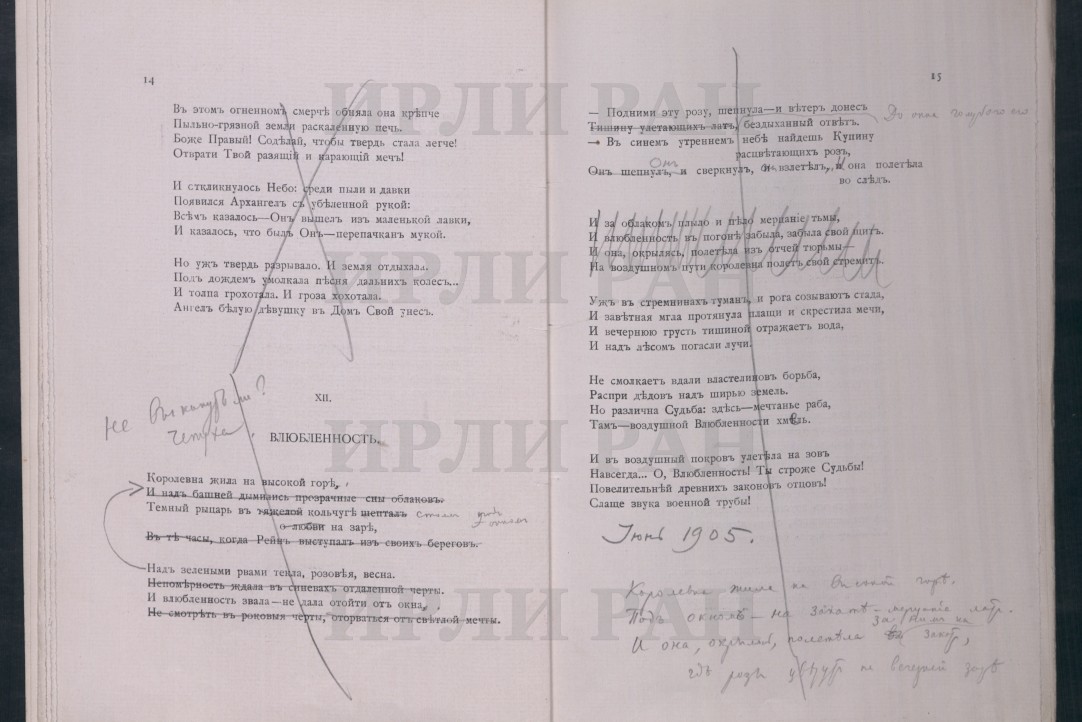 14
Въ этомъ огненномъ смерчѣ обняла она крѣпче
Пыльно-грязной земли раскаленную печь.
Боже Правый! Содѣлай, чтобы твердь стала легче!
Отврати Твой разящій и карающій мечъ!
И откликнулось Небо: среди пыли и давки
Появился Архангелъ съ убѣленной рукой:
Всѣмъ казалось—Онъ вышелъ изъ маленькой лавки,
И казалось, что былъ Онъ—перепачканъ мукой.
Но ужъ твердь разрывало. И земля отдыхала.
Подъ дождемъ умолкала пѣсня дальнихъ колесъ...
И толпа грохотала. И гроза хохотала.
Ангелъ бѣлую дѣвушку въ Домъ Свой унесъ.
Не выкинуть ли?
Чепуха.
XII.
ВЛЮБЛЕННОСТЬ.
Королевна жила на высокой горѣ,
И надъ башней дымились прозрачные сны облаковъ.
Темный рыцарь въ тяжелой кольчугѣ шепталъ
о любви на зарѣ,
Въ тѣ часы, когда Рейнъ выступалъ изъ своихъ береговъ.
Надъ зелеными рвами текла, розовѣя, весна.
Непомѣрность ждала въ синевахъ отдаленной черты.
И влюбленность звала—не дала отойти отъ окна,
Не смотрѣть въ роковыя черты, оторваться отъ свѣтлой мечты.
15
— Подними эту розу, шепнула—и вѣтеръ донесъ
До окна голубого его
Тишину улетающихъ латъ, бездыханный отвѣтъ.
— Въ синемъ утреннемъ небѣ найдешь Купину
расцвѣтающихъ розъ,
Онъ
Онъ шепнулъ, и сверкнулъ, и взлетѣлъ, и она полетѣла
во слѣдъ.
И за облакомъ плыло и пѣло мерцаніе тьмы,
И влюбленность въ погонѣ забыла, забыла свой щитъ.
И она, окрылясь, полетѣла изъ отчей тюрьмы—
На воздушномъ пути королевна полетъ свой стремитъ.
Ужъ въ стремнинахъ туманъ, и рога созываютъ стада,
И завѣтная мгла протянула плащи и скрестила мечи,
И вечернюю грусть тишиной отражаетъ вода,
И надъ лѣсомъ погасли лучи.
Не смолкаетъ вдали властелиновъ борьба,
Распри дѣдовъ надъ ширью земель.
Но различна Судьба: здѣсь—мечтанье раба,
Тамъ—воздушной Влюбленности хмель.
И въ воздушный покровъ улетѣла на зовъ
Навсегда... О, Влюбленность! Ты строже Судьбы!
Повелительнѣй древнихъ законовъ отцовъ!
Слаще звука военной трубы!
Iюнь 1905.
Королевна жила на высокой горѣ.
Подъ окномъ — на закатѣ — мерцаніе латъ.
за нимъ на
И она, окрылясь, полетѣла въ закатъ,
Гдѣ розы цвѣтутъ на вечерней зарѣ
ИРЛИ РАН
ИРЛИ РАН
ИРЛИ РАН
ИРЛИ РАН